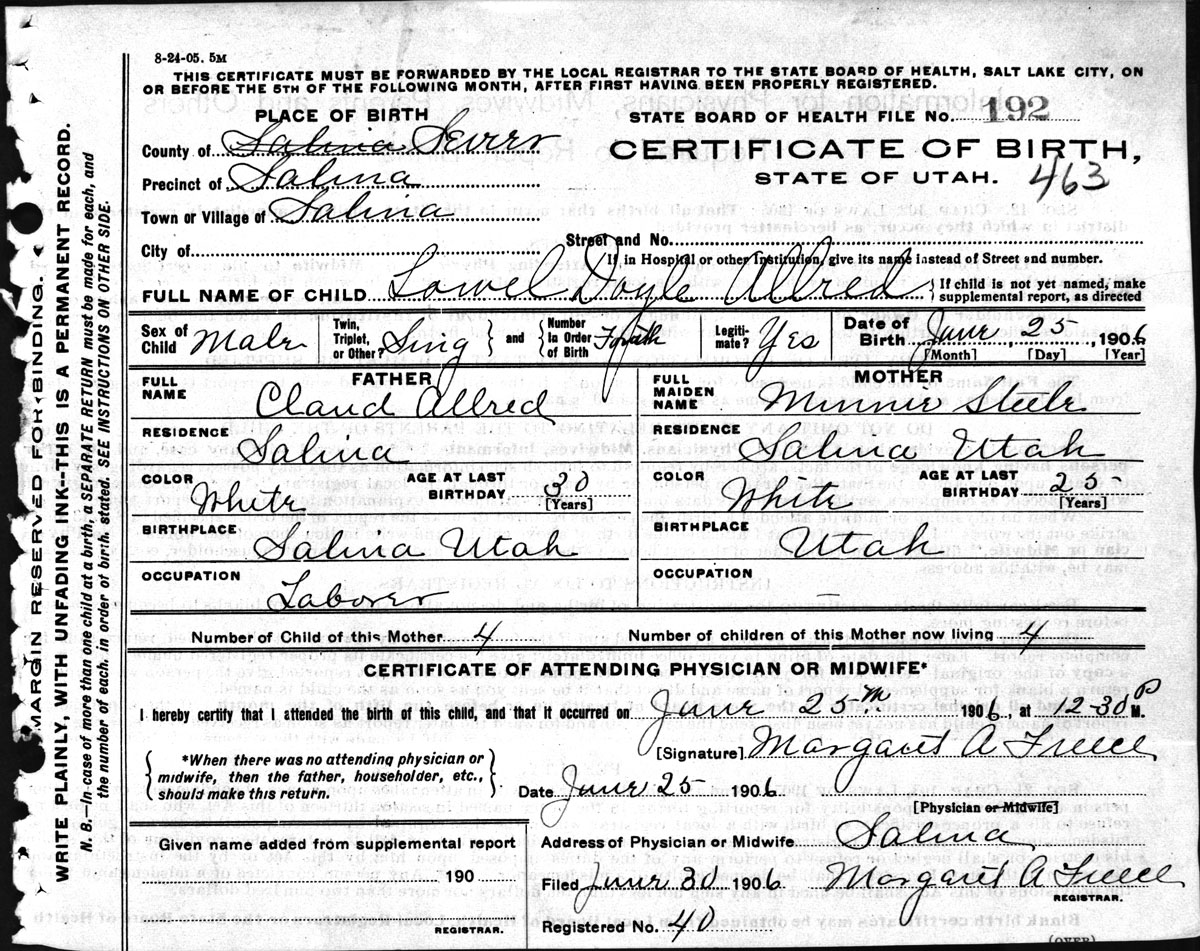 8-24-05. 5M
THIS CERTIFICATE MUST BE FORWARDED BY THE LOCAL REGISTRAR TO THE STATE BOARD OF HEALTH, SALT LAKE CITY, ON
OR BEFORE THE 5TH OF THE FOLLOWING MONTH, AFTER FIRST HAVING BEEN PROPERLY REGISTERED.
PLACE OF BIRTH
STATE BOARD OF HEALTH FILE No. 192
County of Salina Sevier
CERTIFICATE OF BIRTH,
STATE OF UTAH. 463
Precinct of Salina
Town or Village of Salina
City of Street and No.
If in Hospital or other Institution, give its name instead of Street and number.
FULL NAME OF CHILD Lowel Doyle Allred { If child is not yet named, make
supplemental report, as directed
Sex of Child Male Twin, Triplet, or Other? Sing } and { Number In Order of Birth Fourth Legitimate? Yes Date of Birth June 25 1906
[Month] [Day] [Year]
FATHER MOTHER
FULL NAME Claud Allred FULL MAIDEN NAME Minnie Steele
RESIDENCE Salina RESIDENCE Salina Utah
COLOR White AGE AT LAST BIRTHDAY 30 [Years] COLOR White AGE AT LAST BIRTHDAY 25 [Years]
BIRTHPLACE Salina Utah BIRTHPLACE Utah
OCCUPATION Laborer OCCUPATION –
Number of Child of this Mother 4 Number of children of this Mother now living 4
CERTIFICATE OF ATTENDING PHYSICIAN OR MIDWIFE*
I hereby certify that I attended the birth of this child, and that it occurred on June 25 1906, at 12-30 P M.
*When there was no attending physician or
midwife, then the father, householder, etc.,
should make this return.
[Signature] Margaret A Freece
Date June 25 1906
[Physician or Midwife]
Given name added from supplemental report
190
REGISTRAR.
Address of Physician or Midwife Salina
Filed June 30 1906 Margaret A Freece
REGISTRAR.
Registered No. 40
(OVER)
MARGIN RESERVED FOR BINDING.
WRITE PLAINLY, WITH UNFADING INK--THIS IS A PERMANENT RECORD.
N. B.—In case of more than one child at a birth, a SEPARATE RETURN must be made for each, and
the number of each, in order of birth, stated. SEE INSTRUCTIONS ON OTHER SIDE.